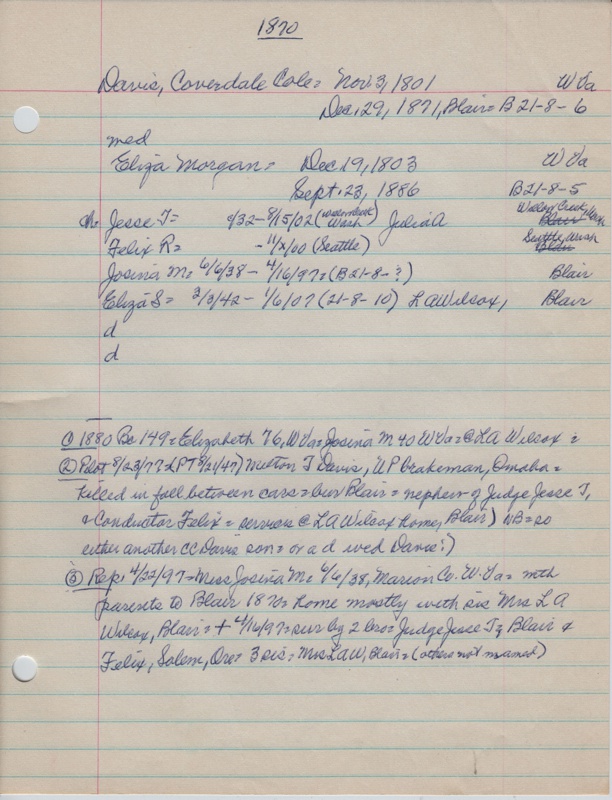 1870
Davis, Coverdale Cole = Nov 3, 1801 W Va
Dec. 29, 1871, Blair = B 21-8-6
med
Eliza Morgan = Dec 19, 1803 W Va
Sept. 23, 1886 B21-8-5
ch. Jesse T = /32 - 8/15/02 (Wash) Julia A Willow Creek, Wash Blair
Felix R = - 11/ /00 (Seattle) Seattle, Wash Blair
Josina M = 6/6/38 - 4/16/97 = (B21-8-?) Blair
Eliza S = 2/3/42 - 1/6/07 (21-8-10) L A Wilcox, Blair
d
d
① 1880 Bc 149 = Elizabeth 76, W Va = Josina M 40 W Va = @ L A Wilcox =
② Pilot 8/23/77 = (PT 8/21/47) T Davis, UP brakeman, Omaha =
killed in fall between cars = bur Blair = nephew of Judge Jesse T,
& Conductor Felix = services @ L A Wilcox home, Blair) NB = so
either another CC Davis son = or a d wed Davis?)
③ Rep. 4/22/97 = Miss Josina M = 6/6/38, Marion Co. W. Va = with
parents to Blair 1870 = home mostly with sis Mrs L A
Wilcox, Blair = + 4/16/97 = sur by 2 bro = Judge Jesse T, Blair &
Felix, Salem, Ore = 3 sis = Mrs L A W, Blair = (others not named)